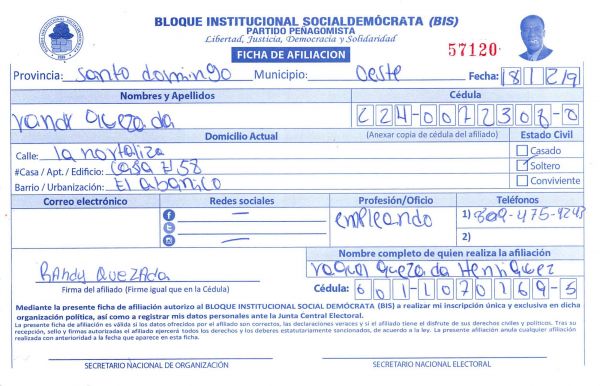 BLOQUE INSTITUCIONAL SOCIALDEMÓCRATA (BIS)
PARTIDO PEÑAGOMISTA
Libertad, Justicia, Democracia y Solidaridad
FICHA DE AFILIACION
57120
Provincia: Santo domingo Municipio: Oeste Fecha: 18/12/9
Nombres y Apellidos Cédula
Quezada 224-0072308-0
Domicilio Actual (Anexar copia de cédula del afiliado) Estado Civil
Calle: la hortaliza Casado
#Casa / Apt. / Edificio: Casa # 58 Soltero
Barrio / Urbanización: El abanico Conviviente
Correo electrónico Redes sociales Profesión/Oficio Teléfonos
— empleando 1) 809-475-9243
— 2)
Nombre completo de quien realiza la afiliación
RANdy QUEZADA Raquel Quezada Henriquez
Firma del afiliado (Firme igual que en la Cédula) Cédula: 001-1070769-5
Mediante la presente ficha de afiliación autorizo al BLOQUE INSTITUCIONAL SOCIAL DEMÓCRATA (BIS) a realizar mi inscripción única y exclusiva en dicha
organización política, así como a registrar mis datos personales ante la Junta Central Electoral.
La presente ficha de afiliación es válida si los datos ofrecidos por el afiliado son correctos, las declaraciones veraces y si el afiliado tiene el disfrute de sus derechos civiles y políticos. Tras su
recepción, sello y firmas autorizadas el afiliado ejercerá todos los derechos y los deberes estatutariamente sancionados, de acuerdo a la ley. La presente afiliación anula cualquier afiliación
realizada con anterioridad a la fecha que aparece en esta ficha.
SECRETARIO NACIONAL DE ORGANIZACIÓN SECRETARIO NACIONAL ELECTORAL